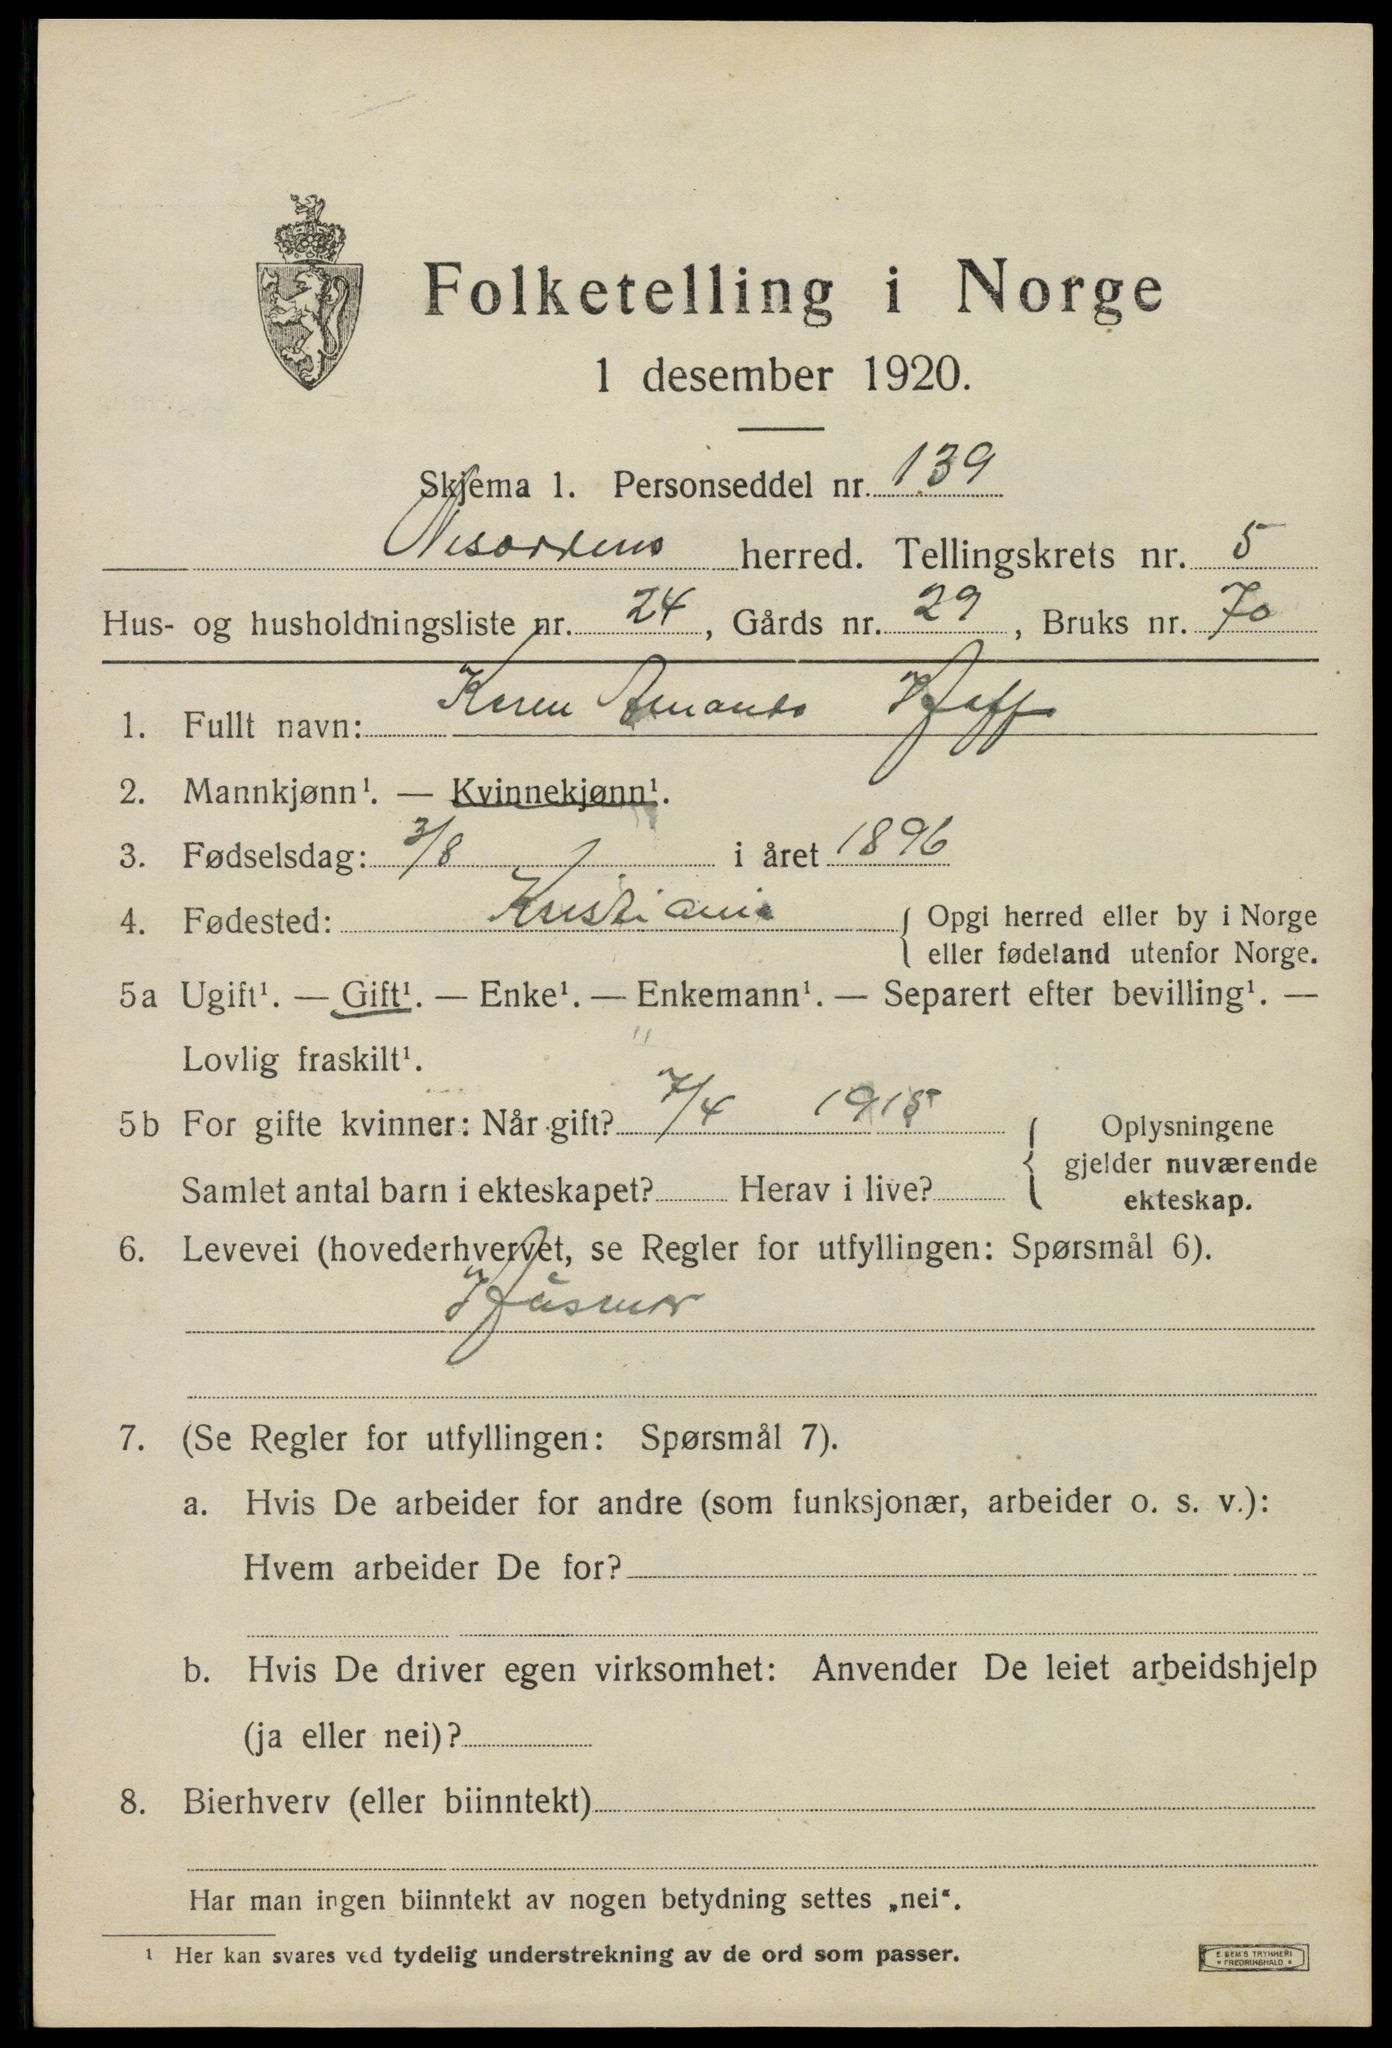 Folketelling i Norge
1 desember 1920.
Skjema 1. Personseddel nr. 139
Nesoddens herred. Tellingskrets nr. 5
Hus- og husholdningsliste nr. 24, Gårds nr. 29, Bruks nr. 70
1. Fullt navn: Karen Amanda Hoff
2. Mannkjønn¹. — Kvinnekjønn¹.
3. Fødselsdag: 3/8 i året 1896
4. Fødested: Kristiania { Opgi herred eller by i Norge
eller fødeland utenfor Norge.
5a Ugift¹. — Gift¹. — Enke¹. — Enkemann¹. — Separert efter bevilling¹. —
Lovlig fraskilt¹.
5b For gifte kvinner: Når gift? 7/4 1918 { Oplysningene
gjelder nuværende
Samlet antal barn i ekteskapet? Herav i live? ekteskap.
6. Levevei (hovederhvervet, se Regler for utfyllingen: Spørsmål 6).
Husmor
7. (Se Regler for utfyllingen: Spørsmål 7).
a. Hvis De arbeider for andre (som funksjonær, arbeider o. s. v.):
Hvem arbeider De for?
b. Hvis De driver egen virksomhet: Anvender De leiet arbeidshjelp
(ja eller nei)?
8. Bierhverv (eller biinntekt)
Har man ingen biinntekt av nogen betydning settes „nei“.
¹ Her kan svares ved tydelig understrekning av de ord som passer.
E. BEM'S TRYKKERI
• FREDRIKSHALD •